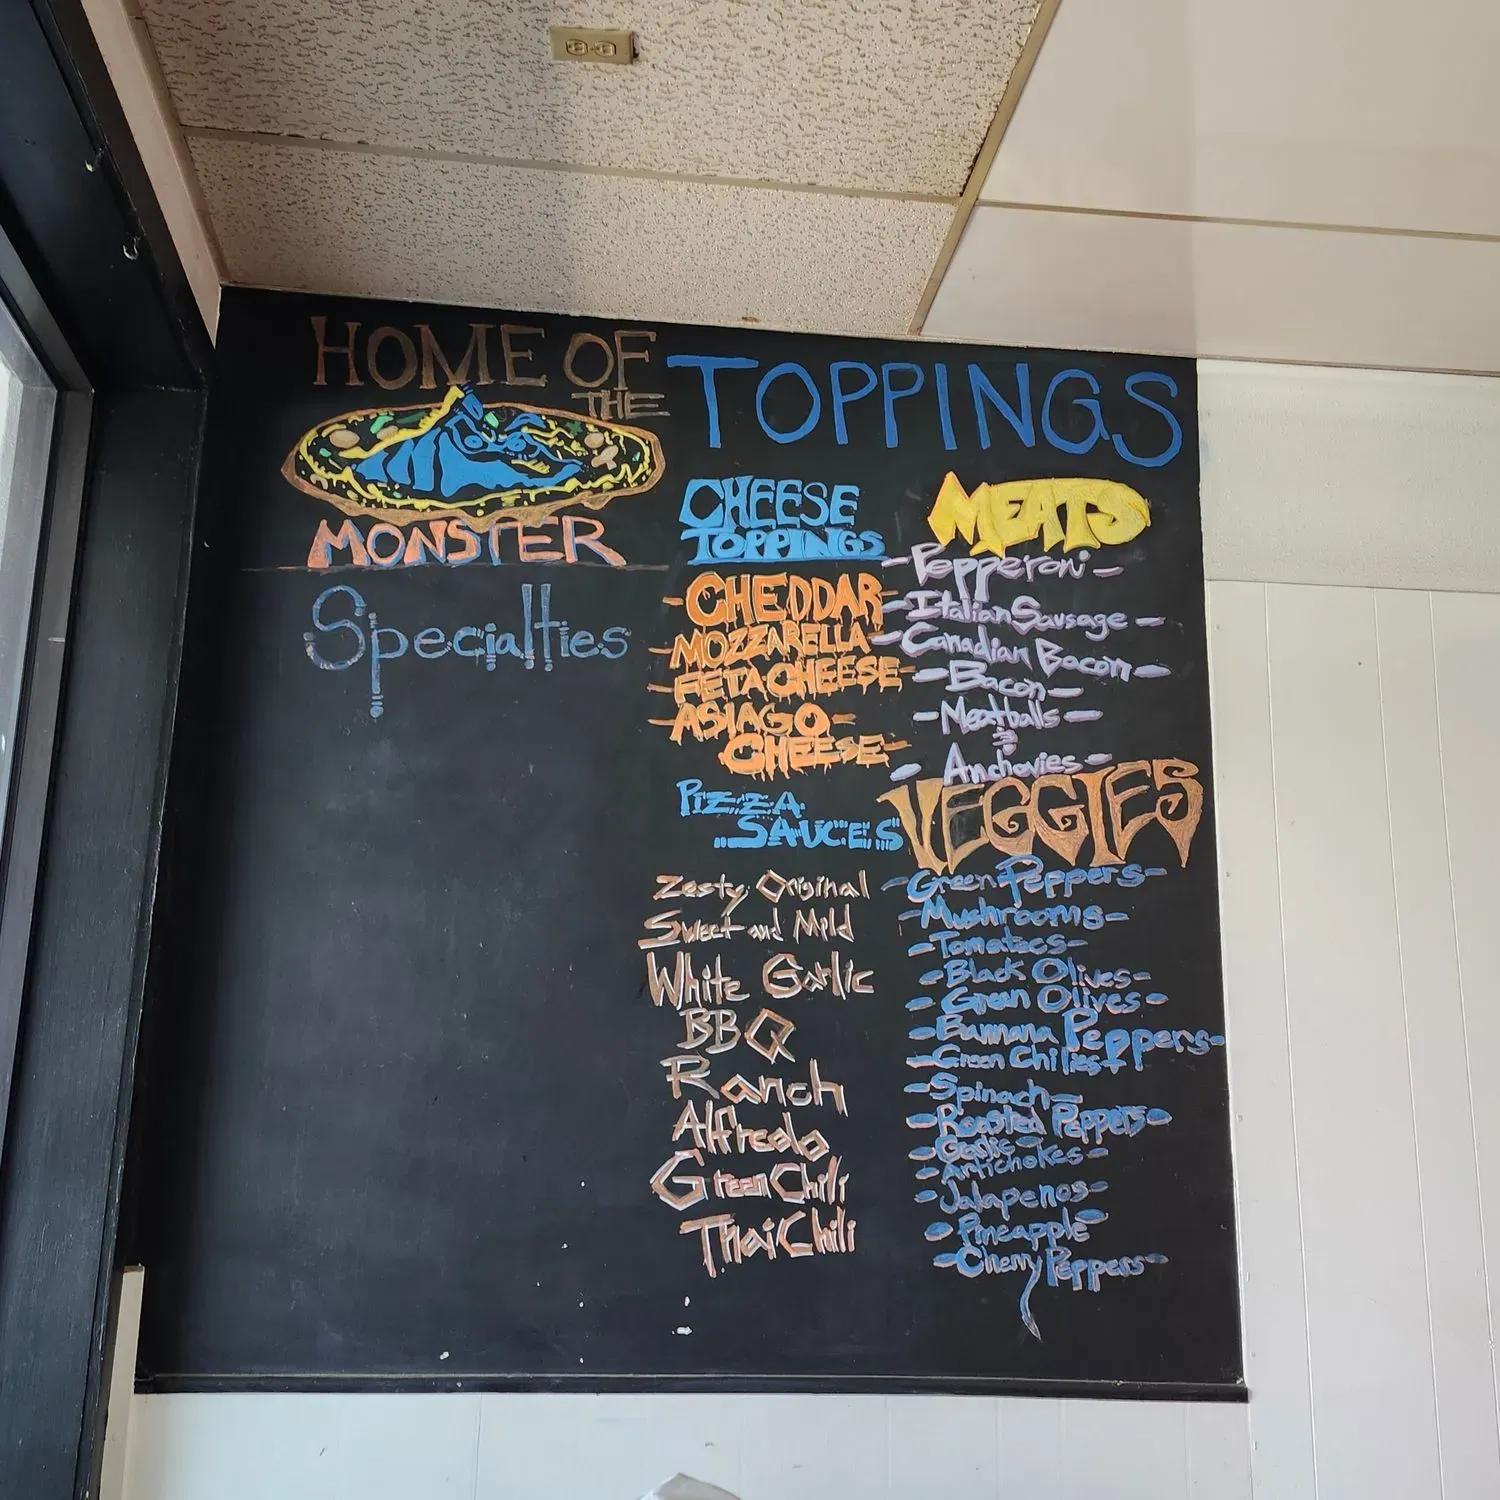 HOME OF
THE
MONSTER
Specialties
TOPPINGS
CHEESE
TOPPINGS
-CHEDDAR-
-MOZZARELLA-
-FETA CHEESE-
-ASIAGO-
CHEESE-
PIZZA
SAUCES
Zesty Original
Sweet and Mild
White Garlic
BBQ
Ranch
Alfredo
Green Chili
Thai Chili
MEATS
-Pepperoni-
-Italian Sausage-
-Canadian Bacon-
-Bacon-
-Meatballs-
&
-Anchovies-
VEGGIES
-Green Peppers-
-Mushrooms-
-Tomatoes-
-Black Olives-
-Green Olives-
-Bannana Peppers-
-Green Chilies-
-Spinach-
-Roasted Peppers-
-Garlic-
-Artichokes-
-Jalapenos-
-Pineapple-
-Cherry Peppers-